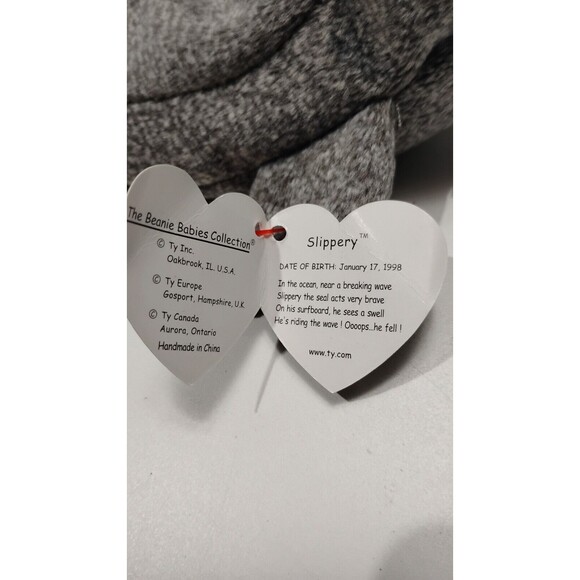 The Beanie Babies Collection®
© Ty Inc.
Oakbrook, IL. U.S.A.
© Ty Europe
Gosport, Hampshire, U.K.
© Ty Canada
Aurora, Ontario
Handmade in China
Slippery™
DATE OF BIRTH: January 17, 1998
In the ocean, near a breaking wave
Slippery the seal acts very brave
On his surfboard, he sees a swell
He's riding the wave ! Oooops...he fell !
www.ty.com